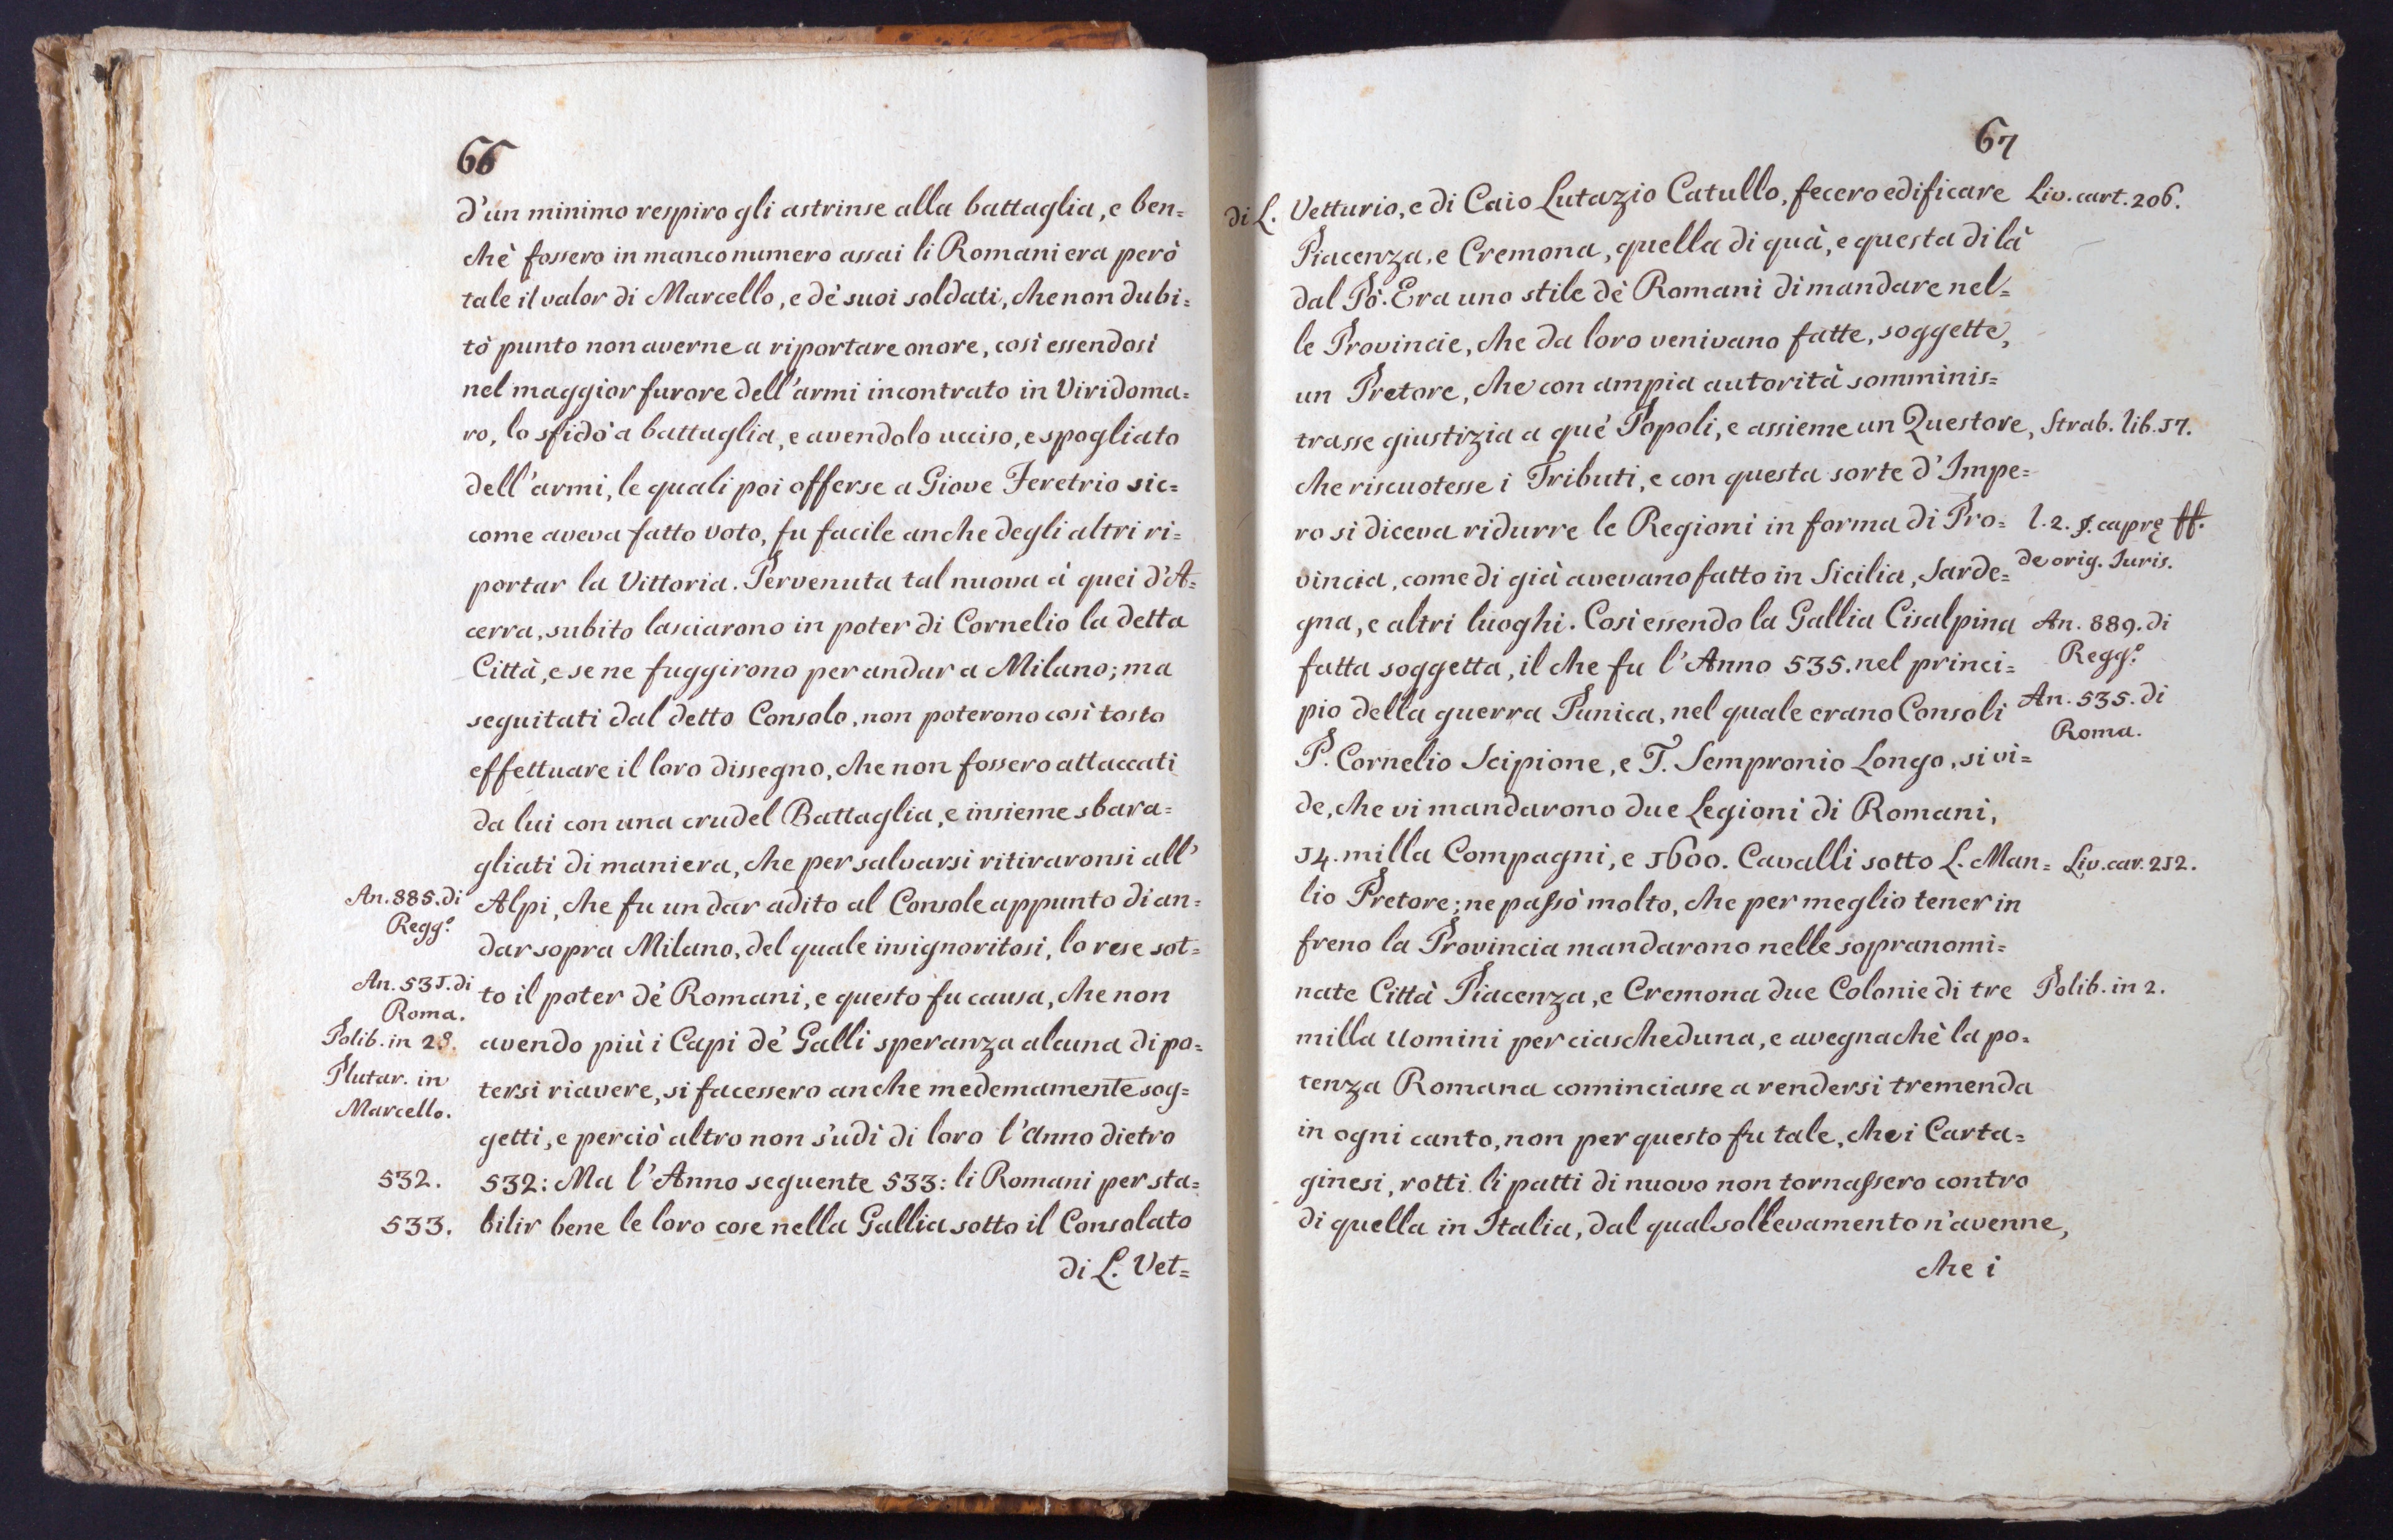 66
d'un minimo respiro gli astrinse alla battaglia, e ben=
chè fossero in manco numero assai li Romani era però
tale il valor di Marcello, e dè suoi soldati, che non dubi=
tò punto non averne a riportare onore, così essendosi
nel maggior furore dell'armi incontrato in Viridoma=
ro, lo sfidò a battaglia, e avendolo ucciso, e spogliato
dell'armi, le quali poi offerse a Giove Feretrio sic=
come aveva fatto voto, fu facile anche degli altri ri=
portar la Vittoria. Pervenuta tal nuova à quei d'A=
cerra, subito lasciarono in poter di Cornelio la detta
Città, e se ne fuggirono per andar a Milano; ma
seguitati dal detto Consolo, non poterono così tosto
effettuare il loro dissegno, che non fossero attaccati
da lui con una crudel Battaglia, e insieme sbara=
gliati di maniera, che per salvarsi ritiraronsi all'
An. 885. di
Regg.º
Alpi, che fu un dar adito al Console appunto di an=
dar sopra Milano, del quale insignoritosi, lo rese sot=
An. 531. di
Roma.
to il poter dè Romani, e questo fu causa, che non
Polib. in 28.
avendo più i Capi dè Galli speranza alcuna di po=
Plutar. in
Marcello.
tersi riavere, si facessero anche medemamente sog=
getti, e perciò altro non s'udì di loro l'anno dietro
532.
532: Ma l'Anno seguente 533: li Romani per sta=
533.
bilir bene le loro cose nella Gallia sotto il Consolato
di L. Vet=
67
di L. Vetturio, e di Caio Lutazio Catullo, fecero edificare
Liv. cart. 206.
Piacenza, e Cremona, quella di quà, e questa di là
dal Pò. Era uno stile dè Romani di mandare nel=
le Provincie, che da loro venivano fatte, soggette,
un Pretore, che con ampia autorità somminis=
trasse giustizia a què Popoli, e assieme un Questore,
Strab. lib. 17.
che riscuotesse i Tributi, e con questa sorte d'Impe=
ro si diceva ridurre le Regioni in forma di Pro=
l. 2. §. caprę ff.
de orig. Juris.
vincia, come di già avevano fatto in Sicilia, Sarde=
gna, e altri luoghi. Così essendo la Gallia Cisalpina
An. 889. di
Regg.º
fatta soggetta, il che fu l'Anno 535. nel princi=
An. 535. di
Roma.
pio della guerra Punica, nel quale erano Consoli
P. Cornelio Scipione, e T. Sempronio Longo, si vi=
de, che vi mandarono due Legioni di Romani,
14. milla Compagni, e 1600. Cavalli sotto L. Man=
Liv. car. 212.
lio Pretore; ne passò molto, che per meglio tener in
freno la Provincia mandarono nelle sopranomi=
nate Città Piacenza, e Cremona due Colonie di tre
Polib. in 2.
milla Uomini per ciascheduna, e avegnachè la po=
tenza Romana cominciasse a rendersi tremenda
in ogni canto, non per questo fu tale, che i Carta=
ginesi, rotti li patti di nuovo non tornassero contro
di quella in Italia, dal qual sollevamento n'avenne,
che i